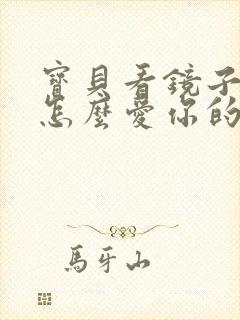 寶貝看鏡子
怎麼愛你的
馬牙山